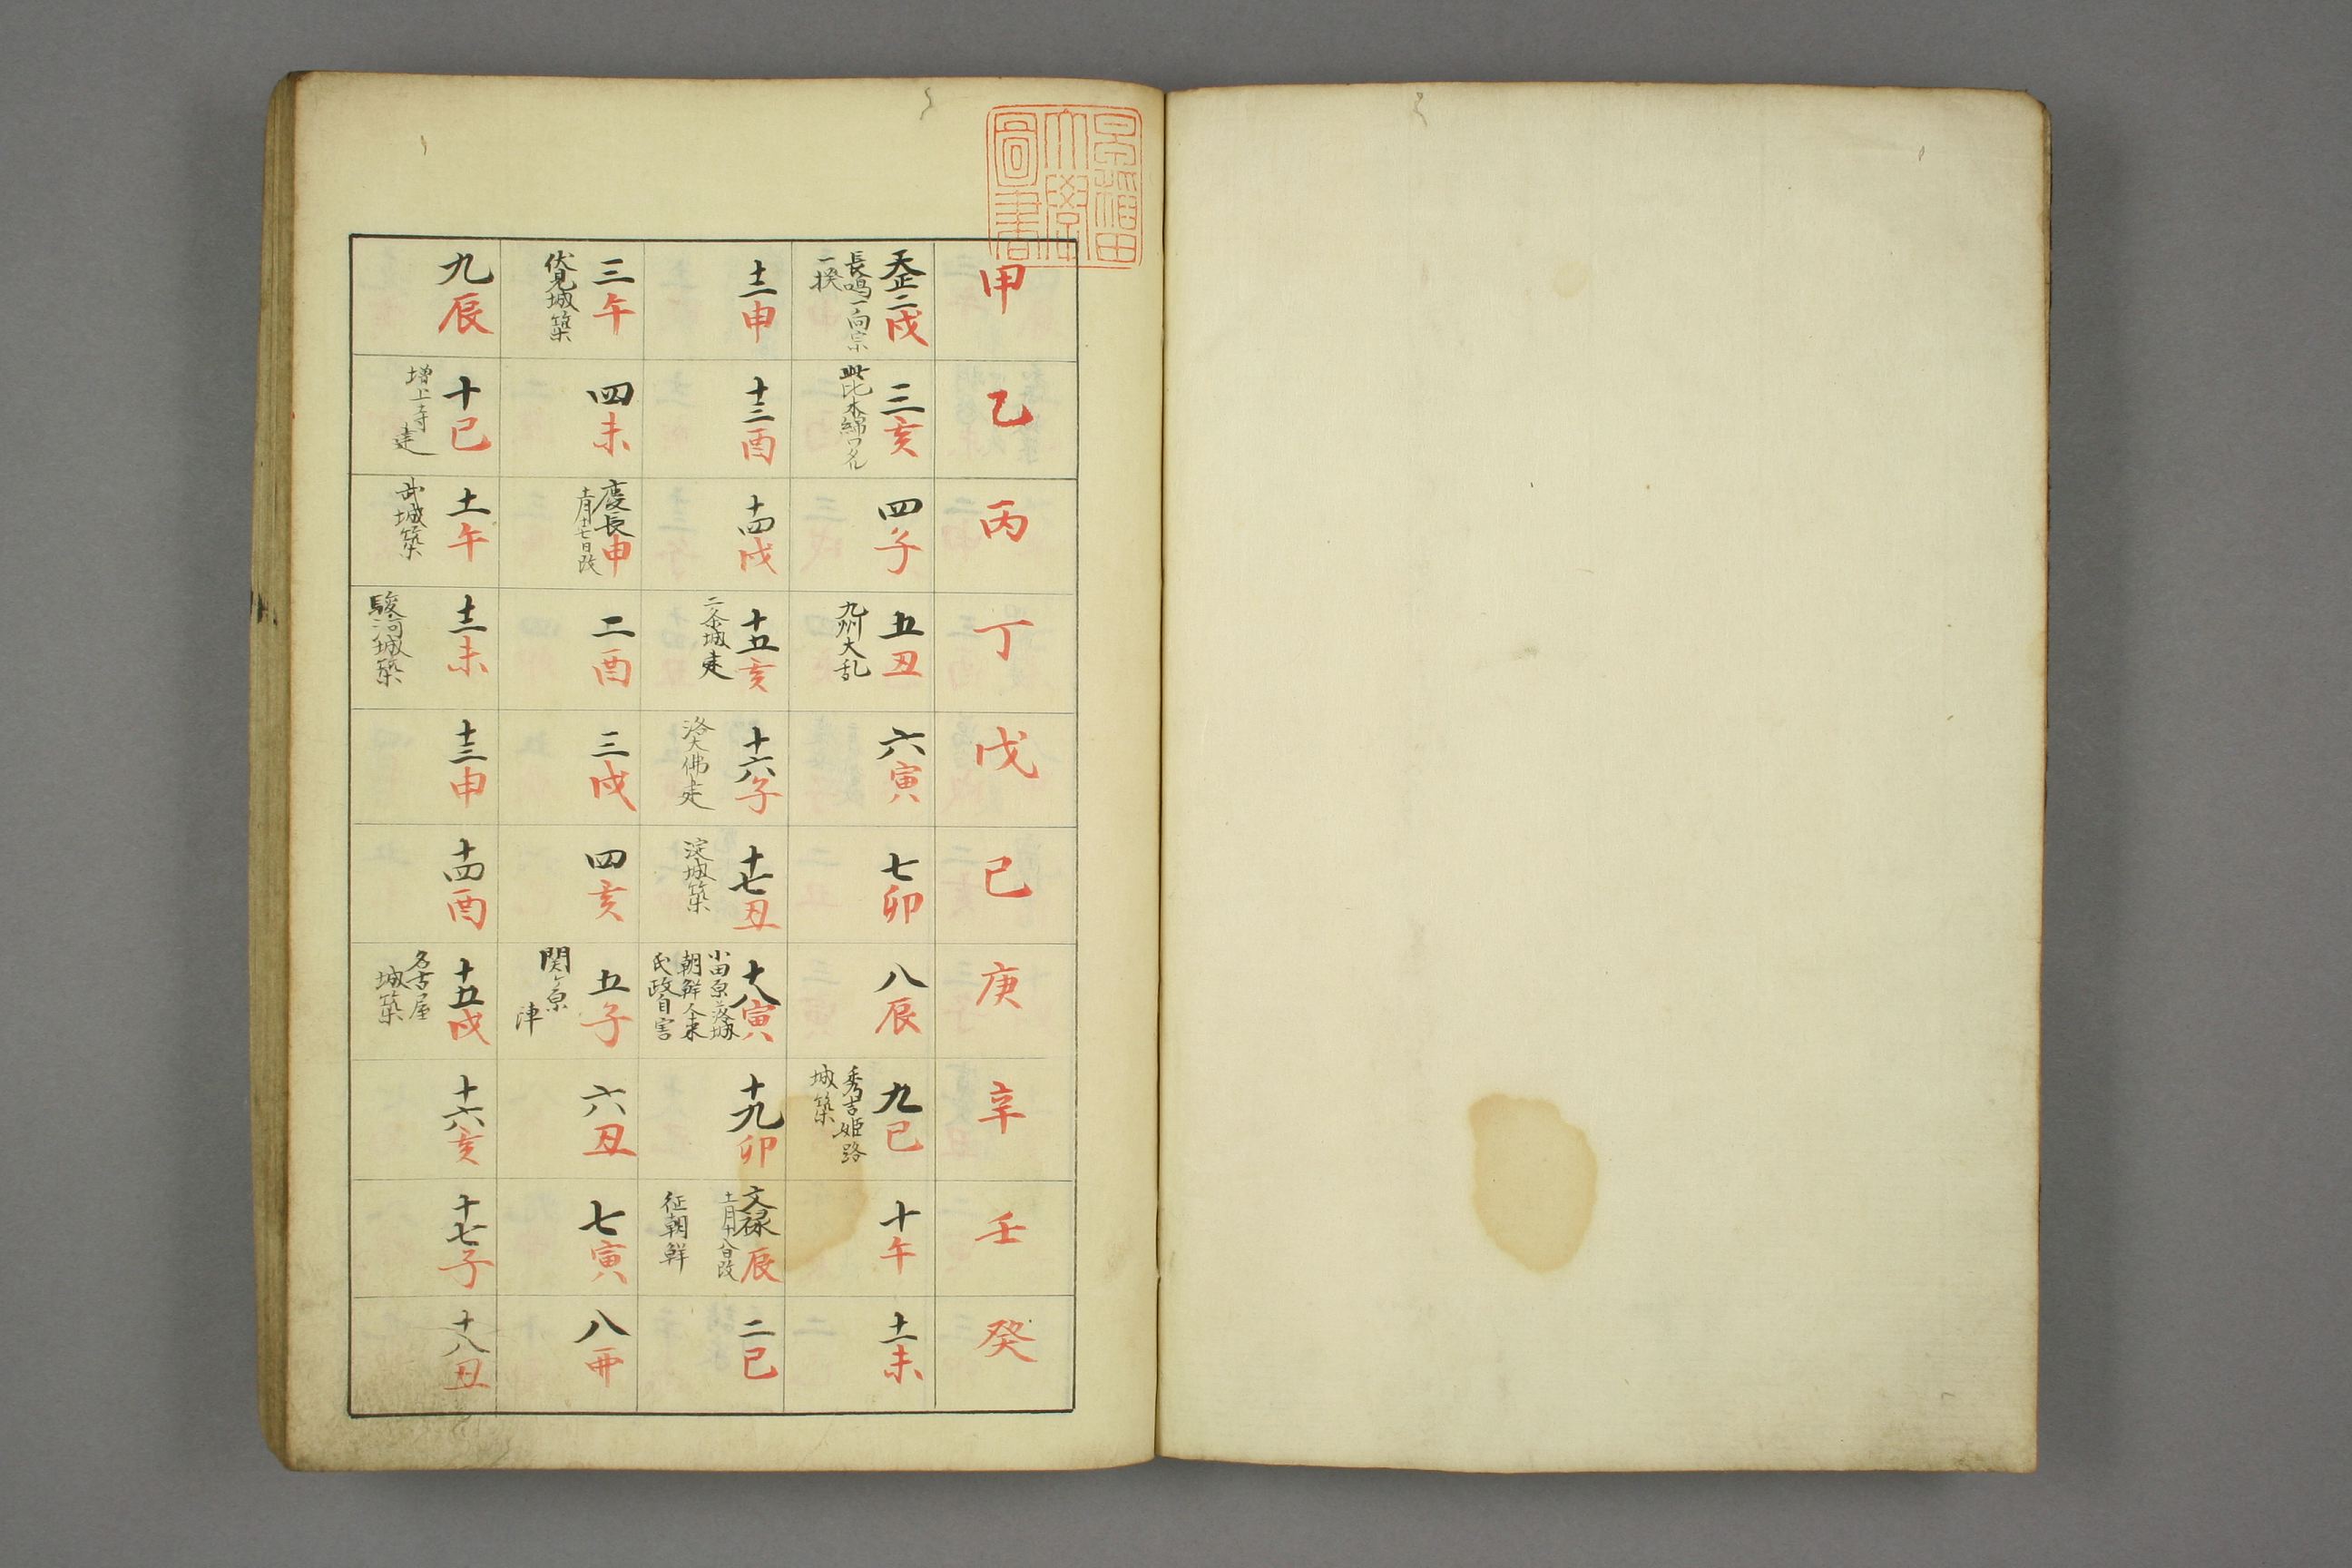 早稲田
大學
圖書
甲
乙
丙
丁
戊
己
庚
辛
壬
癸
天正二戌
長嶋一向宗
一揆
三亥
此比木綿
四子
五丑
九州大乱
六寅
七卯
八辰
九巳
秀吉姫路
城築
十午
十一未
十二申
十三酉
十四戌
十五亥
二条城建
十六子
洛大佛建
十七丑
淀城築
十八寅
小田原落城
朝鮮人来
氏政自害
十九卯
文禄辰
十二月十八日改
征朝鮮
二巳
三午
伏見城築
四未
慶長申
十月廿七日改
二酉
三戌
四亥
五子
関ヶ原
陣
六丑
七寅
八卯
九辰
十巳
増上寺
建
十一午
武城築
十二未
駿河城築
十三申
十四酉
十五戌
名古屋
城築
十六亥
十七子
十八丑